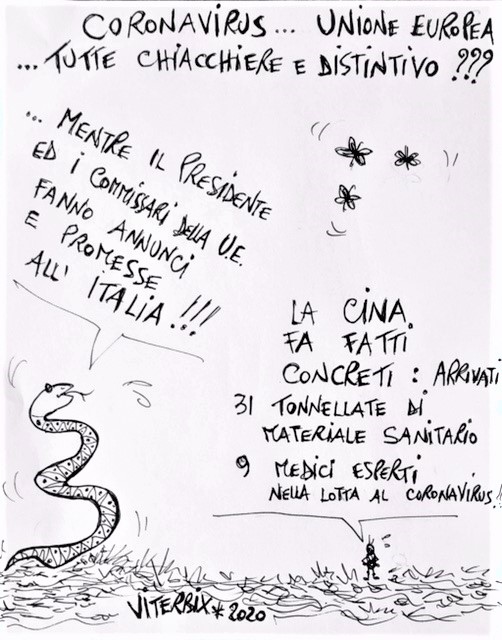 CORONAVIRUS... UNIONE EUROPEA
... TUTTE CHIACCHIERE E DISTINTIVO ???
... MENTRE IL PRESIDENTE
ED I COMMISSARI DELLA U.E.
FANNO ANNUNCI
E PROMESSE
ALL' ITALIA !!!
LA CINA
FA FATTI
CONCRETI : ARRIVATI
31 TONNELLATE DI
MATERIALE SANITARIO
9 MEDICI ESPERTI
NELLA LOTTA AL CORONAVIRUS!!
VITERBIX * 2020